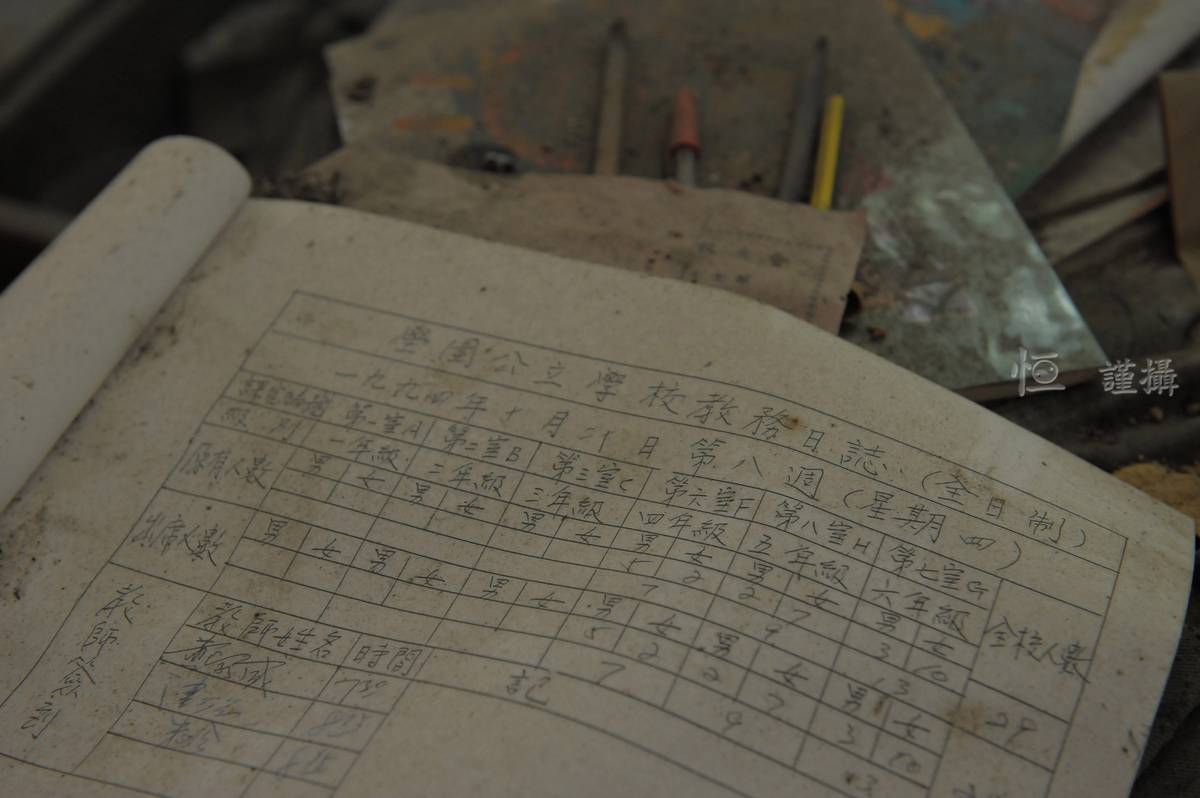 壆圍公立學校教務日誌 (全日制)
一九九四年十月二十日 第八週 (星期四)
第一室A 第二室B 第三室C 第六室F 第八室H 第七室G
級別 一年級 三年級 三年級 四年級 五年級 六年級 全校人數
原有人數 男 女 男 女 男 女 男 女 男 女 男 女
5 2 2 7 3 10
7 9 13 29
出席人數 男 女 男 女 男 女 男 女 男 女 男 女
5 2 2 7 3 10
7 9 13
教師簽到 教師姓名 時間 記
730
恒 謹攝